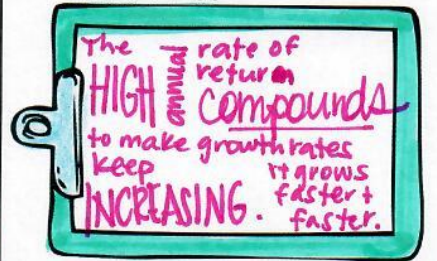 The HIGH annual rate of return compounds
to make growth rates
keep INCREASING.
it grows
faster +
faster.